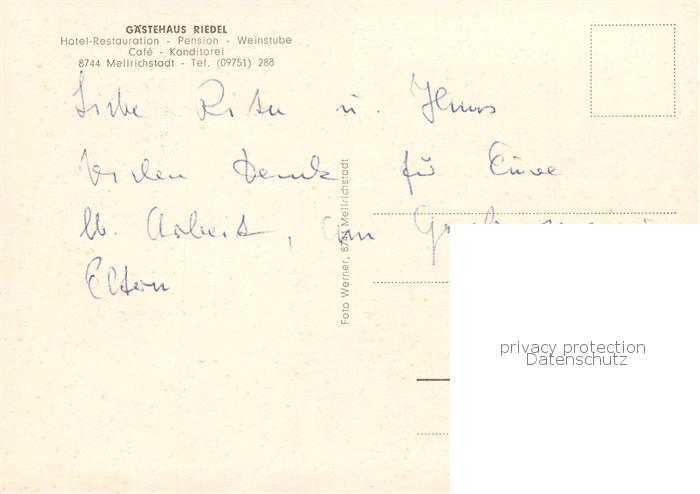 GÄSTEHAUS RIEDEL
Hotel-Restauration - Pension - Weinstube
Café - Konditorei
8744 Mellrichstadt - Tel. (09751) 288
Liebe Rita u. Hans
Vielen Dank für Eure
lb. Arbeit, am Grab
Eltern
Foto Werner, 8744 Mellrichstadt
privacy protection
Datenschutz